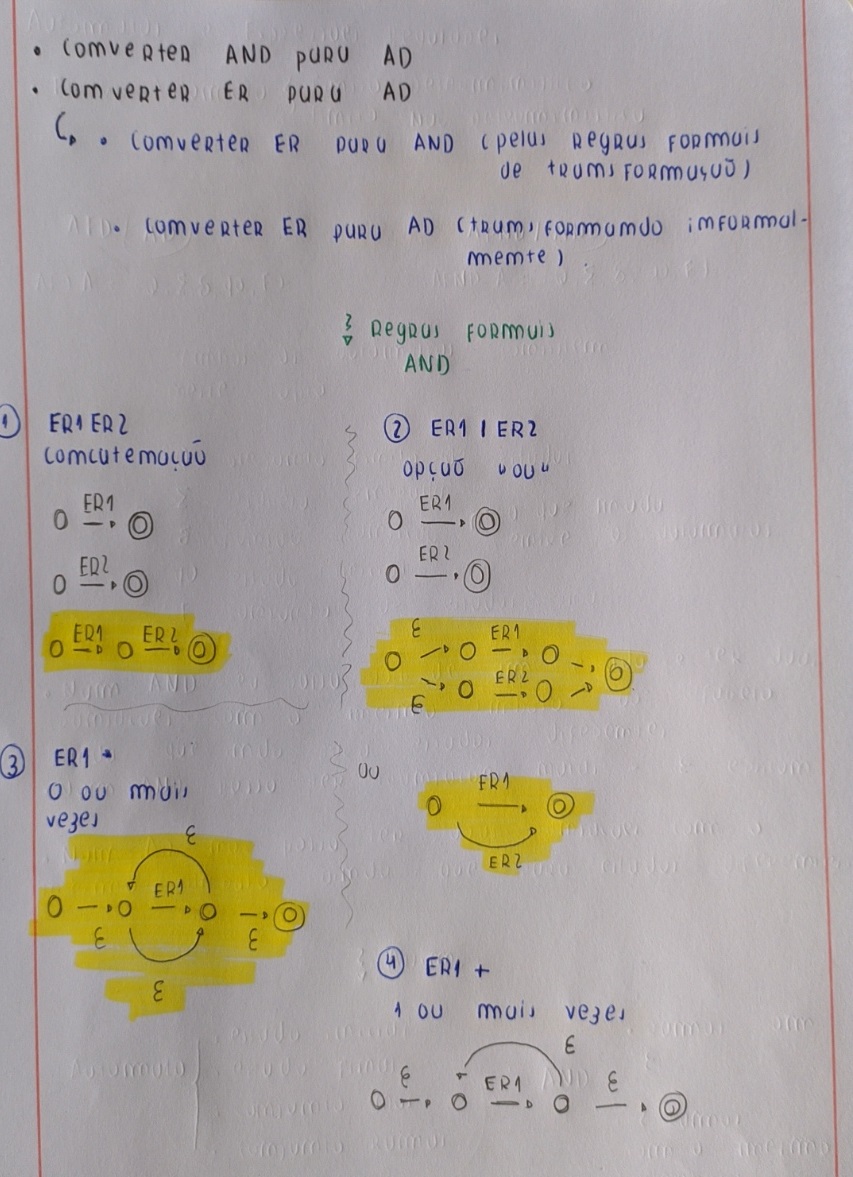 • Converter AND para AD
• Converter ER para AD
• Converter ER para AND (pelas Regras Formais
de transformação)
• Converter ER para AD (transformando informal-
mente).
Regras Formais
AND
① ER1 ER2
concatenação
ER1
ER2
ER1 ER2
② ER1 | ER2
opção "ou"
ER1
ER2
ε ER1
ER2
ε
ou
ER1
ER2
③ ER1 *
0 ou mais
vezes
ε
ER1
ε ε
ε
④ ER1 +
1 ou mais vezes
ε
ε ER1 ε